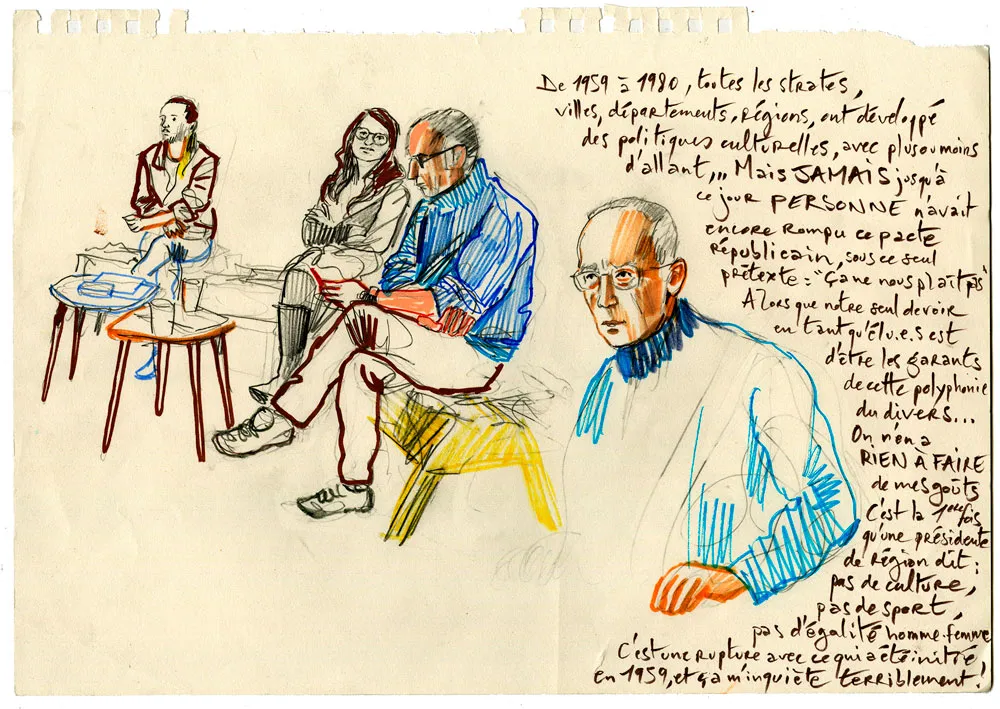 De 1959 à 1980, toutes les strates,
villes, départements, régions, ont développé
des politiques culturelles, avec plus ou moins
d'allant,,, Mais JAMAIS jusqu'à
ce jour PERSONNE n'avait
encore rompu ce pacte
républicain, sous ce seul
prétexte : "Ça ne nous plaît pas"
Alors que notre seul devoir
en tant qu'élu.e.s est
d'être les garants
de cette polyphonie
du divers...
On n'en a
RIEN À FAIRE
de mes goûts
C'est la 1ère fois
qu'une présidente
de région dit :
pas de culture,
pas de sport,
pas d'égalité homme.femme
C'est une rupture avec ce qui a été initié,
en 1959, et ça m'inquiète terriblement !